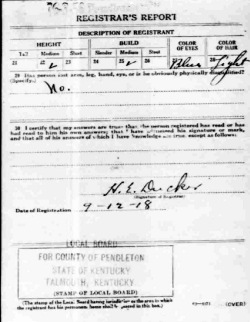 REGISTRAR'S REPORT
DESCRIPTION OF REGISTRANT
HEIGHT BUILD COLOR OF EYES COLOR OF HAIR
Tall Medium Short Slender Medium Stout
21 22 23 24 25 26 27 Blue 28 Light
29 Has person lost arm, leg, hand, eye, or is he obviously physically disqualified?
(Specify.)
No.
30 I certify that my answers are true; that the person registered has read or has
had read to him his own answers; that I have witnessed his signature or mark,
and that all of his answers of which I have knowledge are true, except as follows:
H. E. Ducker
(Signature of Registrar)
Date of Registration 9-12-18
LOCAL BOARD
FOR COUNTY OF PENDLETON
STATE OF KENTUCKY
FALMOUTH, KENTUCKY
(STAMP OF LOCAL BOARD)
(The stamp of the Local Board having jurisdiction of the area in which the
registrant has his permanent home shall be placed in this box.)
(OVER)